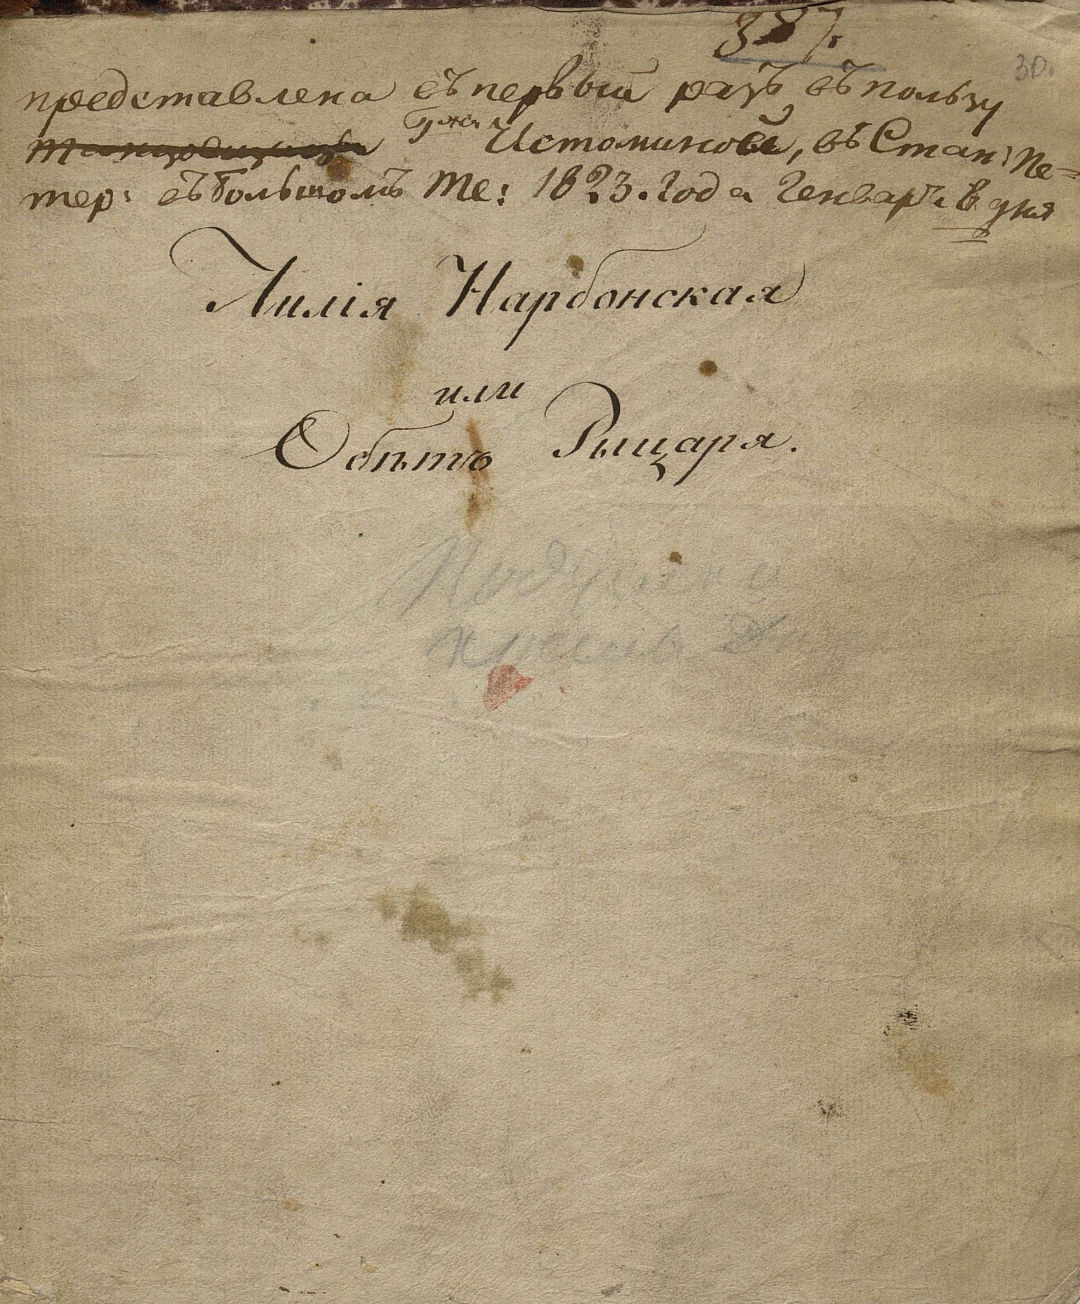 387.
30.
представлена въ первый разъ въ пользу
танцовщицы Г-жи Истоминой, въ Санк: Пе=
тер: въ большомъ Те: 1823. Года Генваря 8 дня
Лилія Нарбонская
или
Обѣтъ Рыцаря.